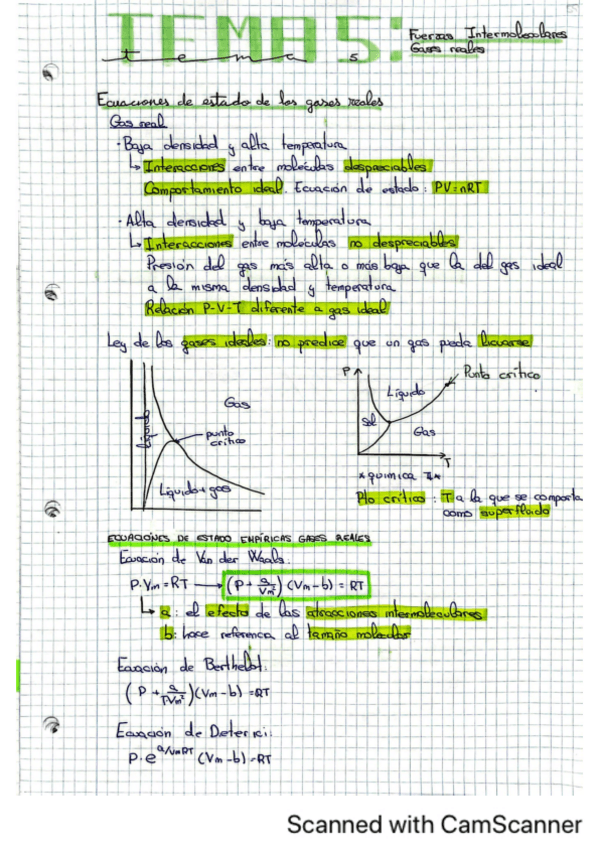 TEMA 5:
tema 5
Fuerzas Intermoleculares
Gases reales
Ecuaciones de estado de los gases reales
Gas real
· Baja densidad y alta temperatura
↳ Interacciones entre moléculas despreciables
Comportamiento ideal. Ecuación de estado: PV=nRT
· Alta densidad y baja temperatura
↳ Interacciones entre moléculas no despreciables
Presión del gas más alta o más baja que la del gas ideal
a la misma densidad y temperatura
Relación P-V-T diferente a gas ideal
Ley de los gases ideales: no predice que un gas pueda licuarse
Gas
punto
crítico
Líquido
Líquido+gas
P
Punto crítico
Líquido
Sol
Gas
T
* química II *
Pto crítico: T a la que se comporta
como superfluido
ECUACIONES DE ESTADO EMPÍRICAS GASES REALES
Ecuación de Van der Waals:
P·Vm=RT → (P + a/Vm²) (Vm-b) = RT
↳ a: el efecto de las atracciones intermoleculares
b: hace referencia al tamaño molecular
Ecuación de Berthelot:
(P + a/TVm²)(Vm-b) =RT
Ecuación de Deterici:
P·e^(a/VmRT) (Vm-b)=RT
Scanned with CamScanner